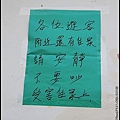 各位遊客
附近還有住家
請安靜
不要吵